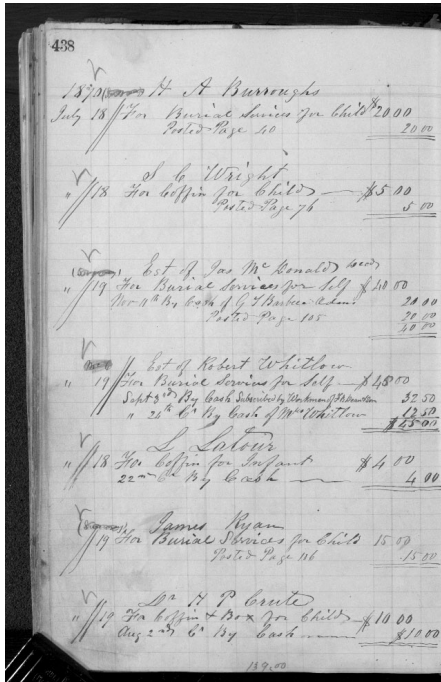 438
1870 H A Burroughs
July 18 For Burial Services for Child $20.00
Posted Page 40 20.00
S C Wright
" 18 For Coffin for Child $5.00
Posted Page 76 5.00
Est of Jas McDonald
" 19 For Burial Services for Self $40.00
Nov 11th By Cash of G T Barbee 20.00
Posted Page 105 20.00
40.00
Est of Robert Whitlow
" 19 For Burial Services for Self $45.00
Sept 3rd By Cash Subscribed by Workmen of 32.50
" 26th Cr By Cash of Mrs Whitlow 12.50
$45.00
L Latour
" 18 For Coffin for Infant $4.00
22nd Cr By Cash 4.00
James Ryan
" 19 For Burial Services for Child 15.00
Posted Page 116 15.00
Dr H P Crute
" 19 For Coffin & Box for Child $10.00
Aug 2nd Cr By Cash $10.00
139.00